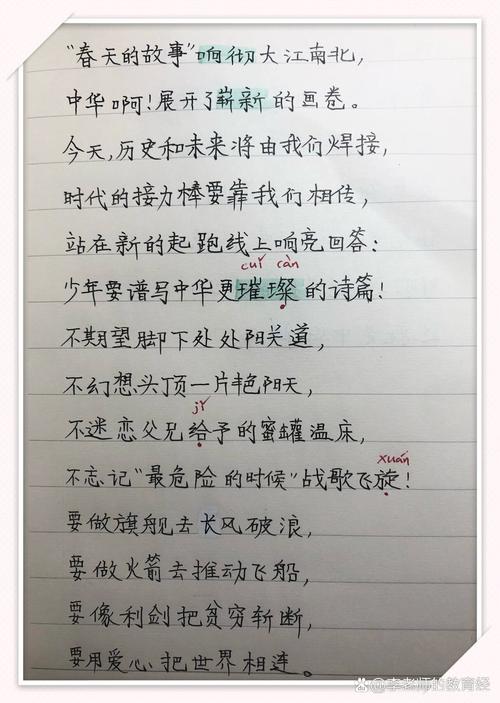 “春天的故事”响彻大江南北，
中华啊！展开了崭新的画卷。
今天，历史和未来将由我们焊接，
时代的接力棒要靠我们相传，
站在新的起跑线上响亮回答：
cuǐ càn
少年要谱写中华更璀璨的诗篇！
不期望脚下处处阳关道，
不幻想头顶一片艳阳天，
jǐ
不迷恋父兄给予的蜜罐温床，
xuán
不忘记“最危险的时候”战歌飞旋！
要做旗舰去长风破浪，
要做火箭去推动飞船，
要像利剑把贫穷斩断，
要用爱心把世界相连。
李老师的教育经